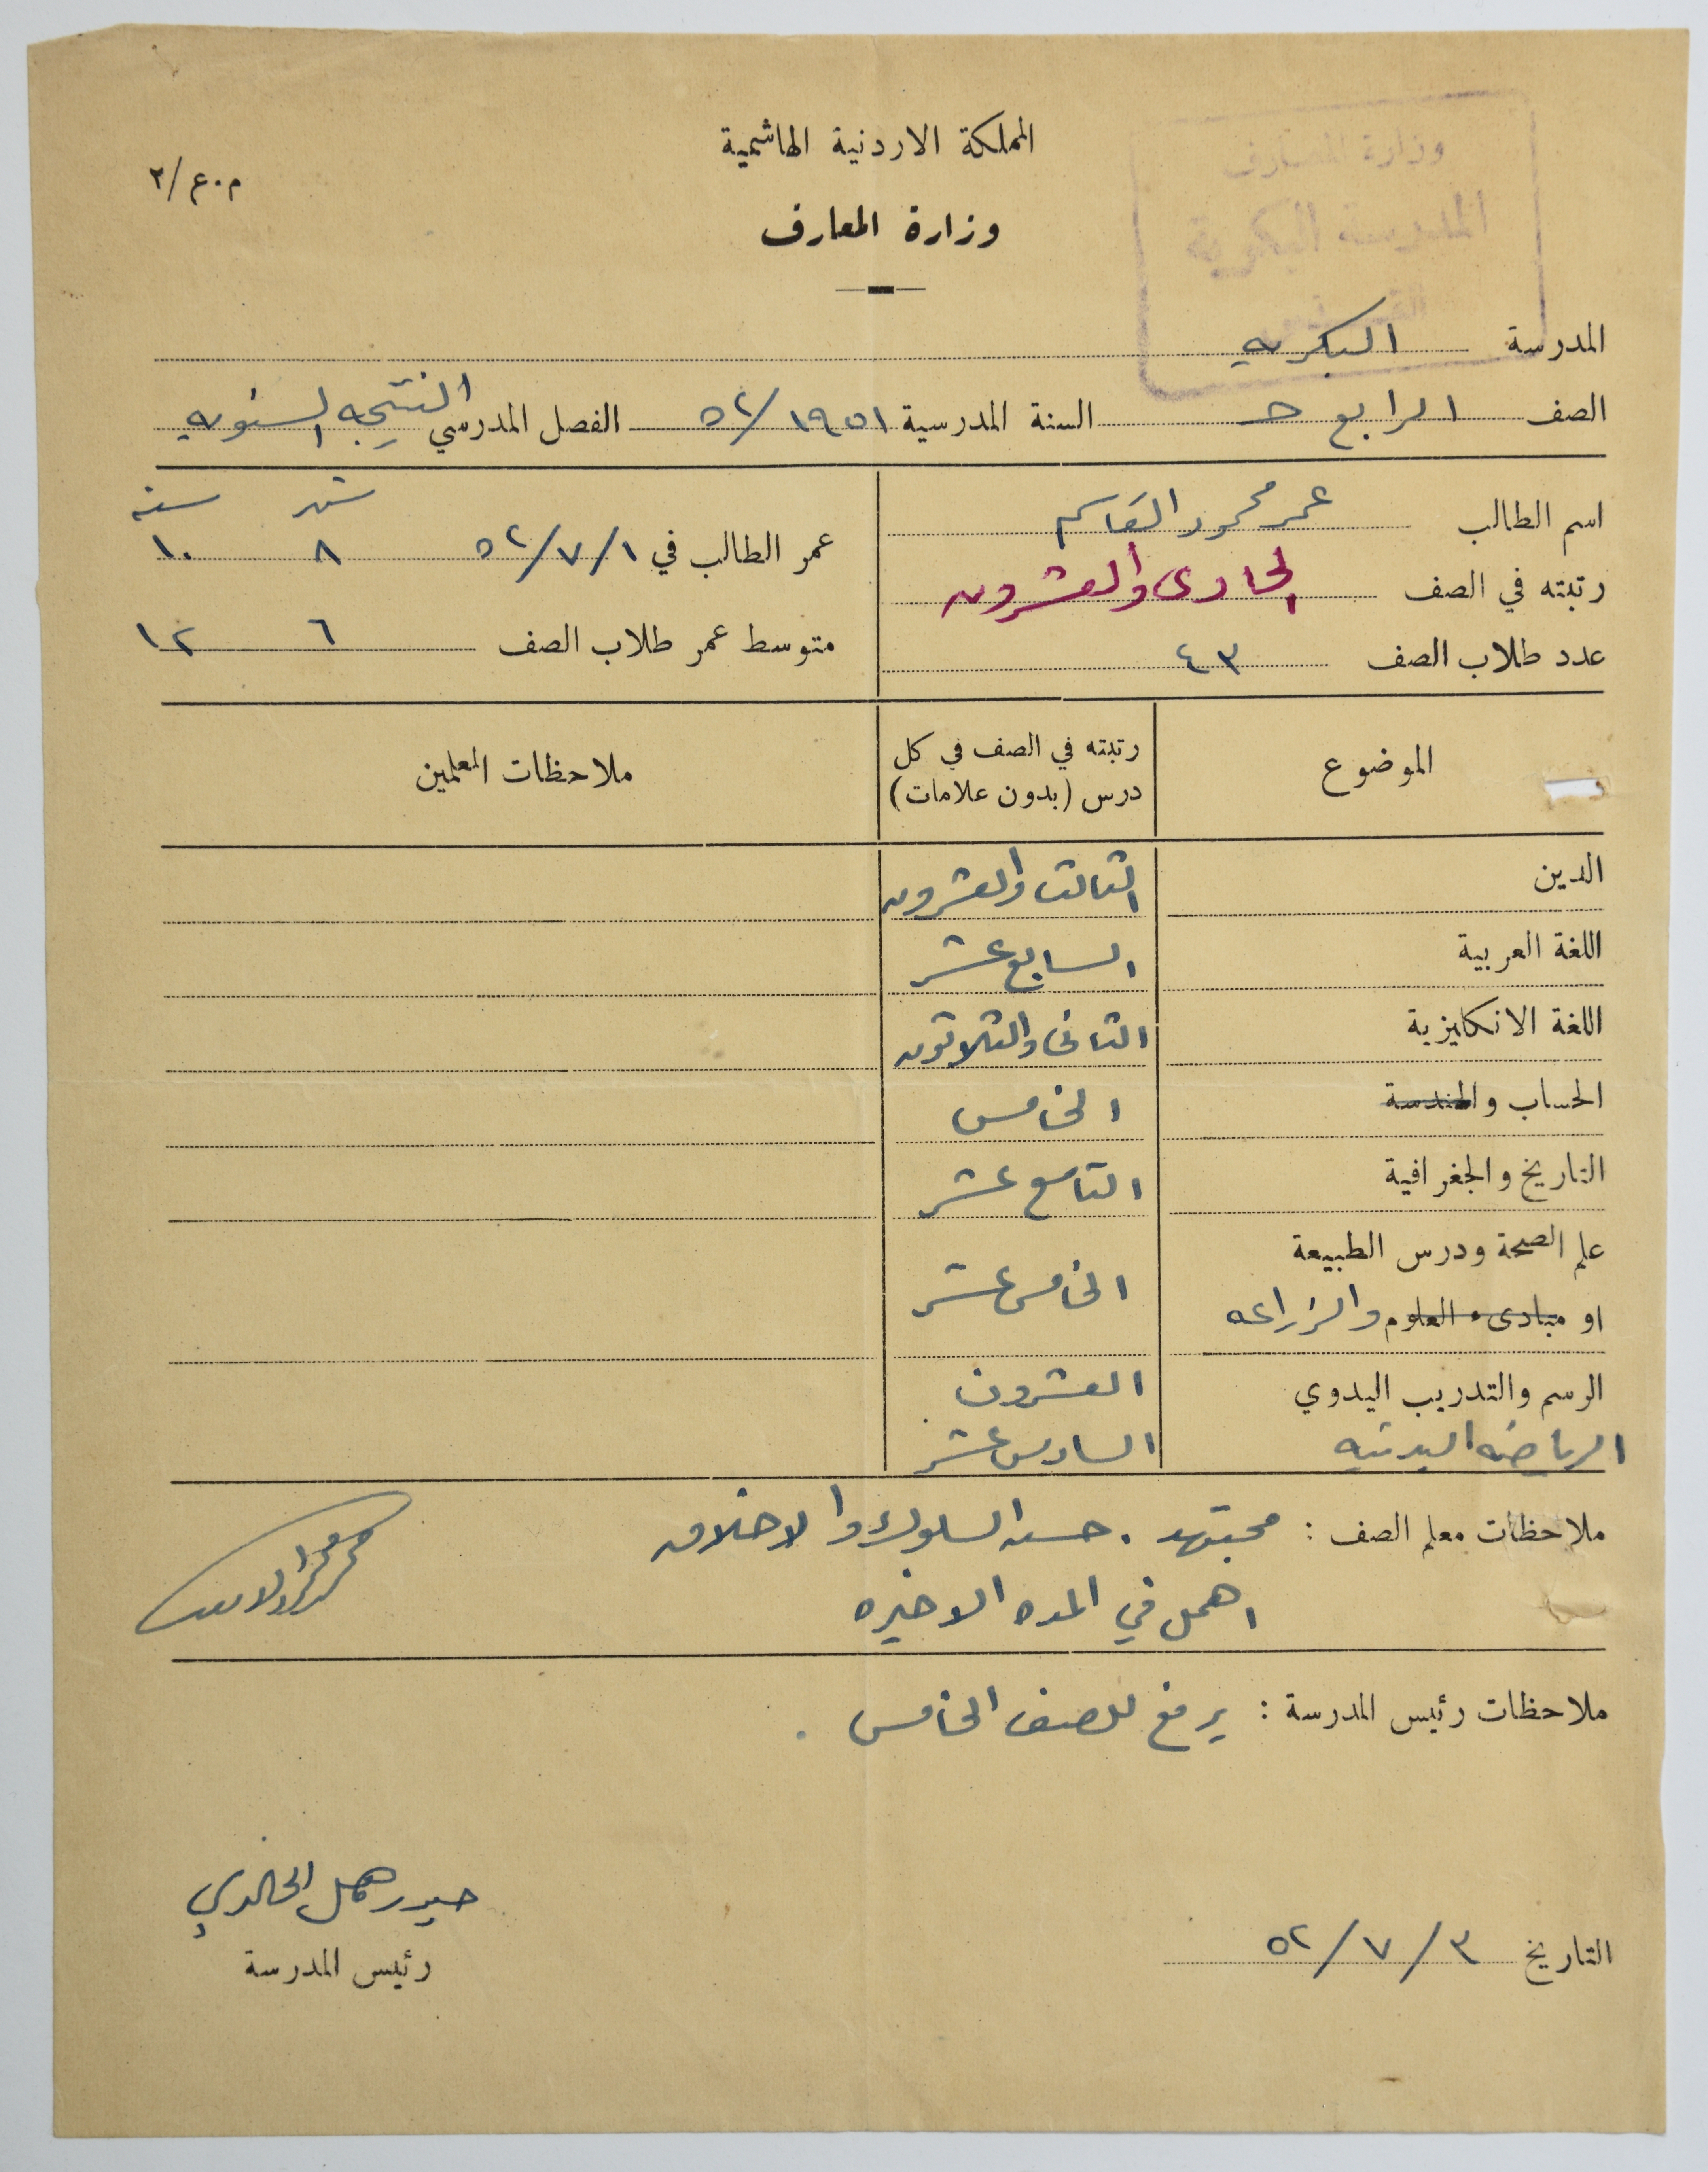 المملكة الاردنية الهاشمية
م.ع/٢
وزارة المعارف
وزارة المعارف
المدرسة البكرية
المدرسة البكريه
الصف الرابع حـ السنة المدرسية ١٩٥١/٥٢ الفصل المدرسي النتيجه السنويه
اسم الطالب عمر محمود القاسم
شهر سنة
عمر الطالب في ٥٢/٧/١ ٨ ١٠
رتبته في الصف الحادى والعشرون
عدد طلاب الصف ٤٣
متوسط عمر طلاب الصف ٦ ١٢
الموضوع
رتبته في الصف في كل درس (بدون علامات)
ملاحظات المعلمين
الدين الثالث والعشرون
اللغة العربية السابع عشر
اللغة الانكليزية الثانى والثلاثون
الحساب والهندسة الخامس
التاريخ والجغرافية التاسع عشر
علم الصحة ودرس الطبيعة
او مبادىء العلوم والزراعه الخامس عشر
الرسم والتدريب اليدوي العشرون
الرياضه البدنيه السادس عشر
ملاحظات معلم الصف : مجتهد . حسن السلوك والاخلاق
اهمل في المده الاخيره
ملاحظات رئيس المدرسة : يرفع للصف الخامس .
الخالدي
رئيس المدرسة
التاريخ ٥٢/٧/٣